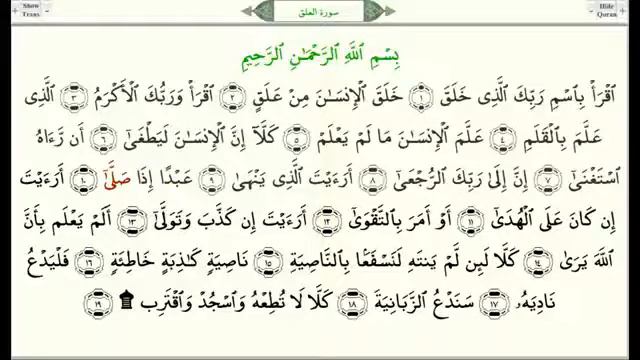 Show Trans
سورة العلق
Hide Quran
بِسْمِ ٱللَّهِ ٱلرَّحْمَـٰنِ ٱلرَّحِيمِ
ٱقْرَأْ بِٱسْمِ رَبِّكَ ٱلَّذِى خَلَقَ ١ خَلَقَ ٱلْإِنسَـٰنَ مِنْ عَلَقٍ ٢ ٱقْرَأْ وَرَبُّكَ ٱلْأَكْرَمُ ٣ ٱلَّذِى
عَلَّمَ بِٱلْقَلَمِ ٤ عَلَّمَ ٱلْإِنسَـٰنَ مَا لَمْ يَعْلَمْ ٥ كَلَّآ إِنَّ ٱلْإِنسَـٰنَ لَيَطْغَىٰٓ ٦ أَن رَّءَاهُ
ٱسْتَغْنَىٰٓ ٧ إِنَّ إِلَىٰ رَبِّكَ ٱلرُّجْعَىٰٓ ٨ أَرَءَيْتَ ٱلَّذِى يَنْهَىٰ ٩ عَبْدًا إِذَا صَلَّىٰٓ ١٠ أَرَءَيْتَ
إِن كَانَ عَلَى ٱلْهُدَىٰٓ ١١ أَوْ أَمَرَ بِٱلتَّقْوَىٰٓ ١٢ أَرَءَيْتَ إِن كَذَّبَ وَتَوَلَّىٰٓ ١٣ أَلَمْ يَعْلَم بِأَنَّ
ٱللَّهَ يَرَىٰ ١٤ كَلَّا لَئِن لَّمْ يَنتَهِ لَنَسْفَعًۢا بِٱلنَّاصِيَةِ ١٥ نَاصِيَةٍ كَـٰذِبَةٍ خَاطِئَةٍ ١٦ فَلْيَدْعُ
نَادِيَهُۥ ١٧ سَنَدْعُ ٱلزَّبَانِيَةَ ١٨ كَلَّا لَا تُطِعْهُ وَٱسْجُدْ وَٱقْتَرِب ۩ ١٩